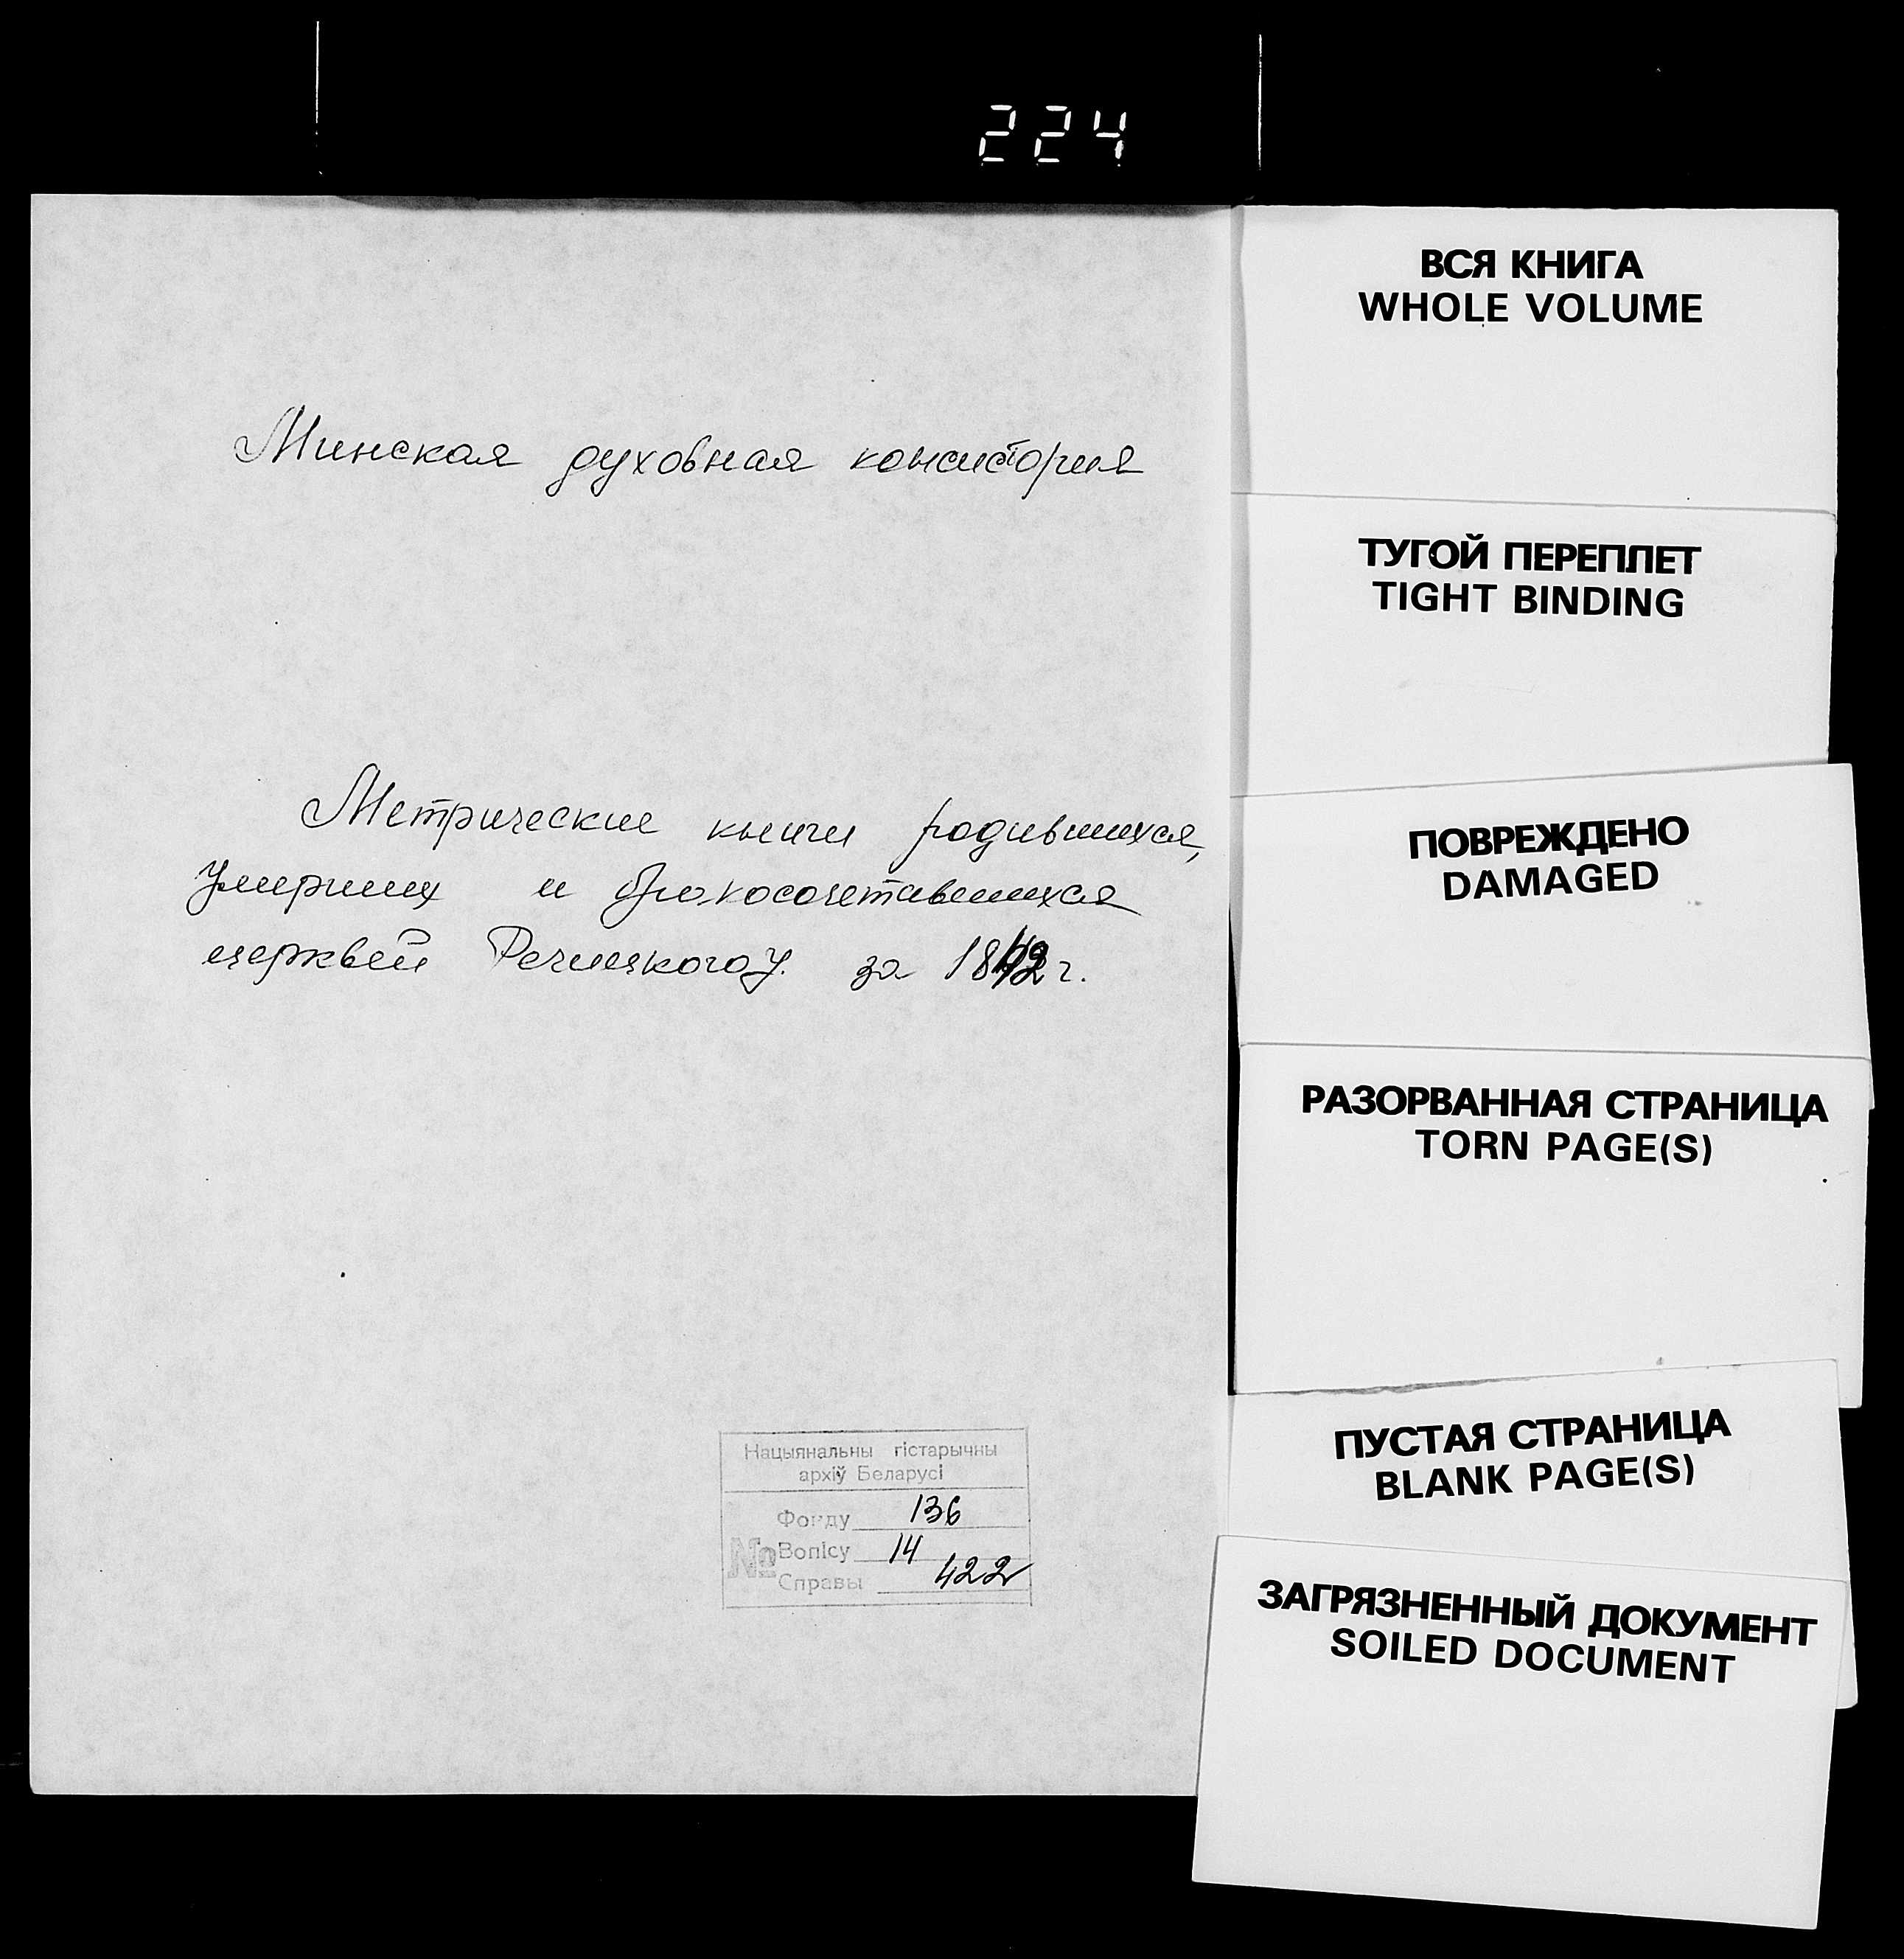 224
Минская духовная консистория
Метрические книги родившихся,
умерших и бракосочетавшихся
церквей Речицкого у. за 1842 г.
Нацыянальны гістарычны
архіў Беларусі
Фонду 136
№ Вопісу 14
Справы 422
ВСЯ КНИГА
WHOLE VOLUME
ТУГОЙ ПЕРЕПЛЕТ
TIGHT BINDING
ПОВРЕЖДЕНО
DAMAGED
РАЗОРВАННАЯ СТРАНИЦА
TORN PAGE(S)
ПУСТАЯ СТРАНИЦА
BLANK PAGE(S)
ЗАГРЯЗНЕННЫЙ ДОКУМЕНТ
SOILED DOCUMENT